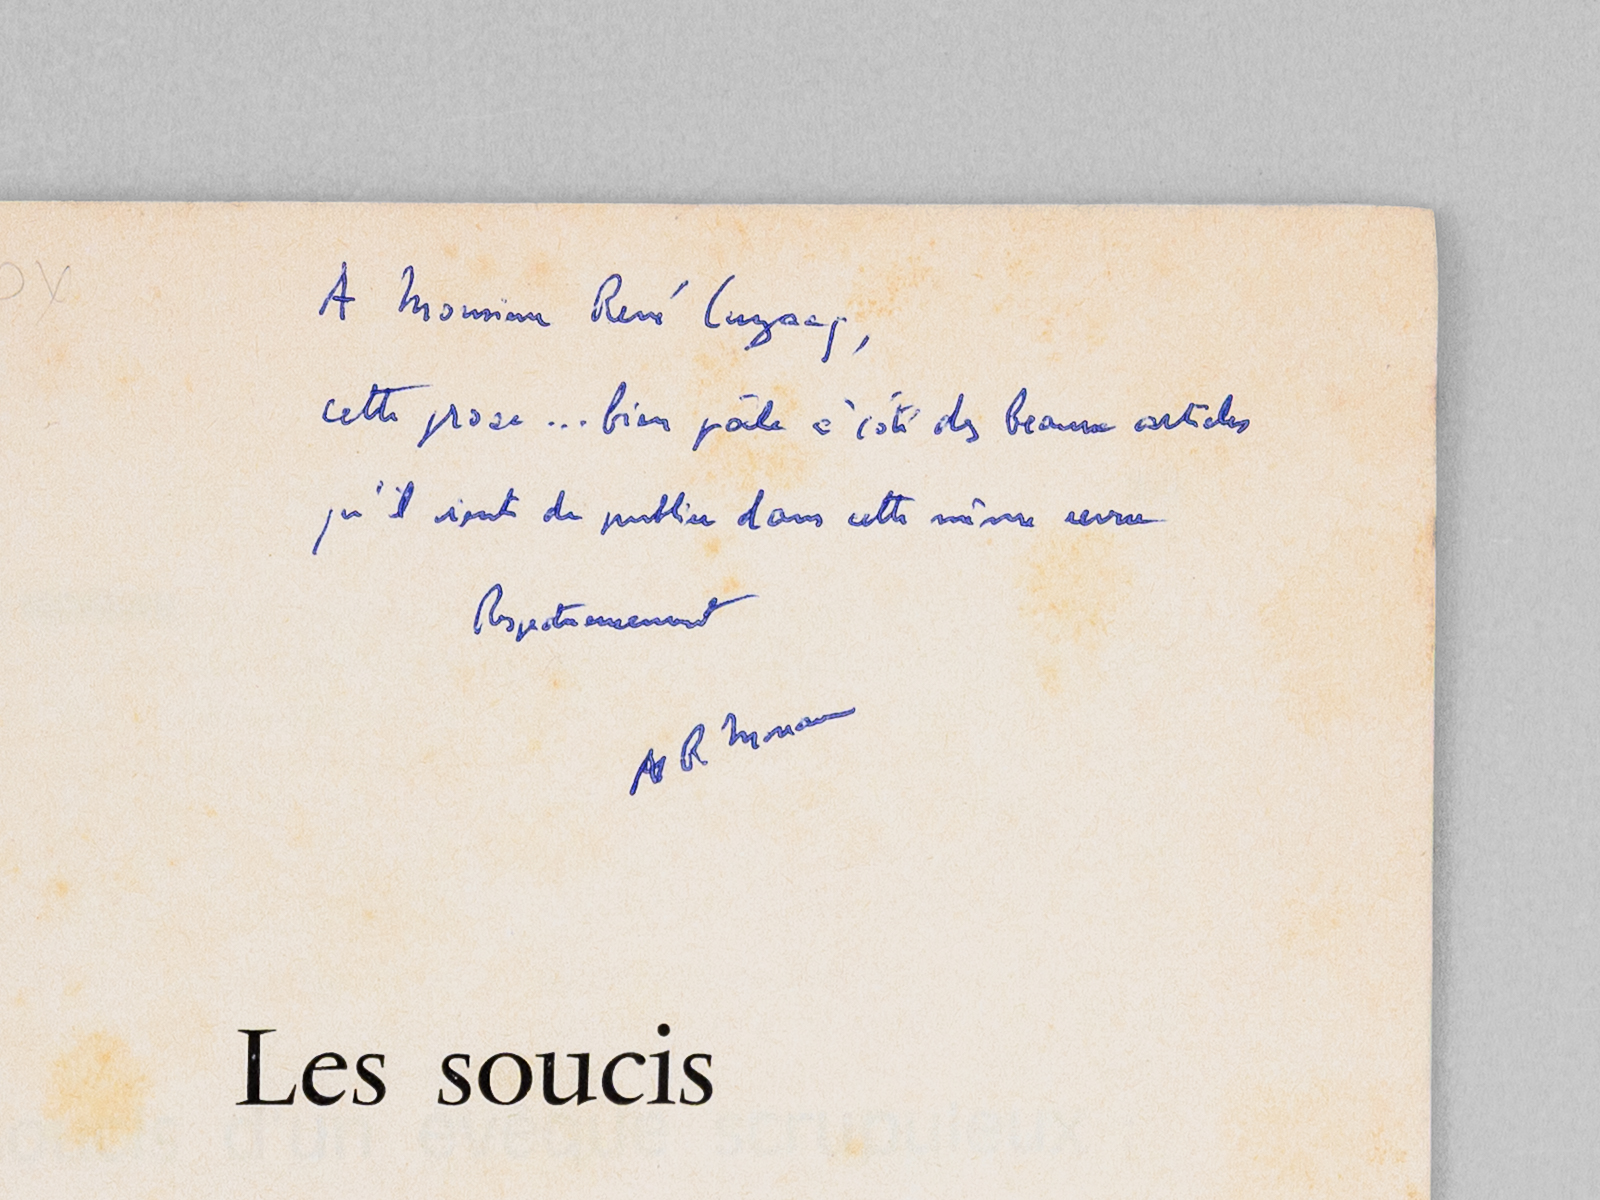 A Monsieur René Cuzacq,
cette prose ... bien pâle à côté des beaux articles
qu'il vient de publier dans cette même revue
Respectueusement
R
Les soucis